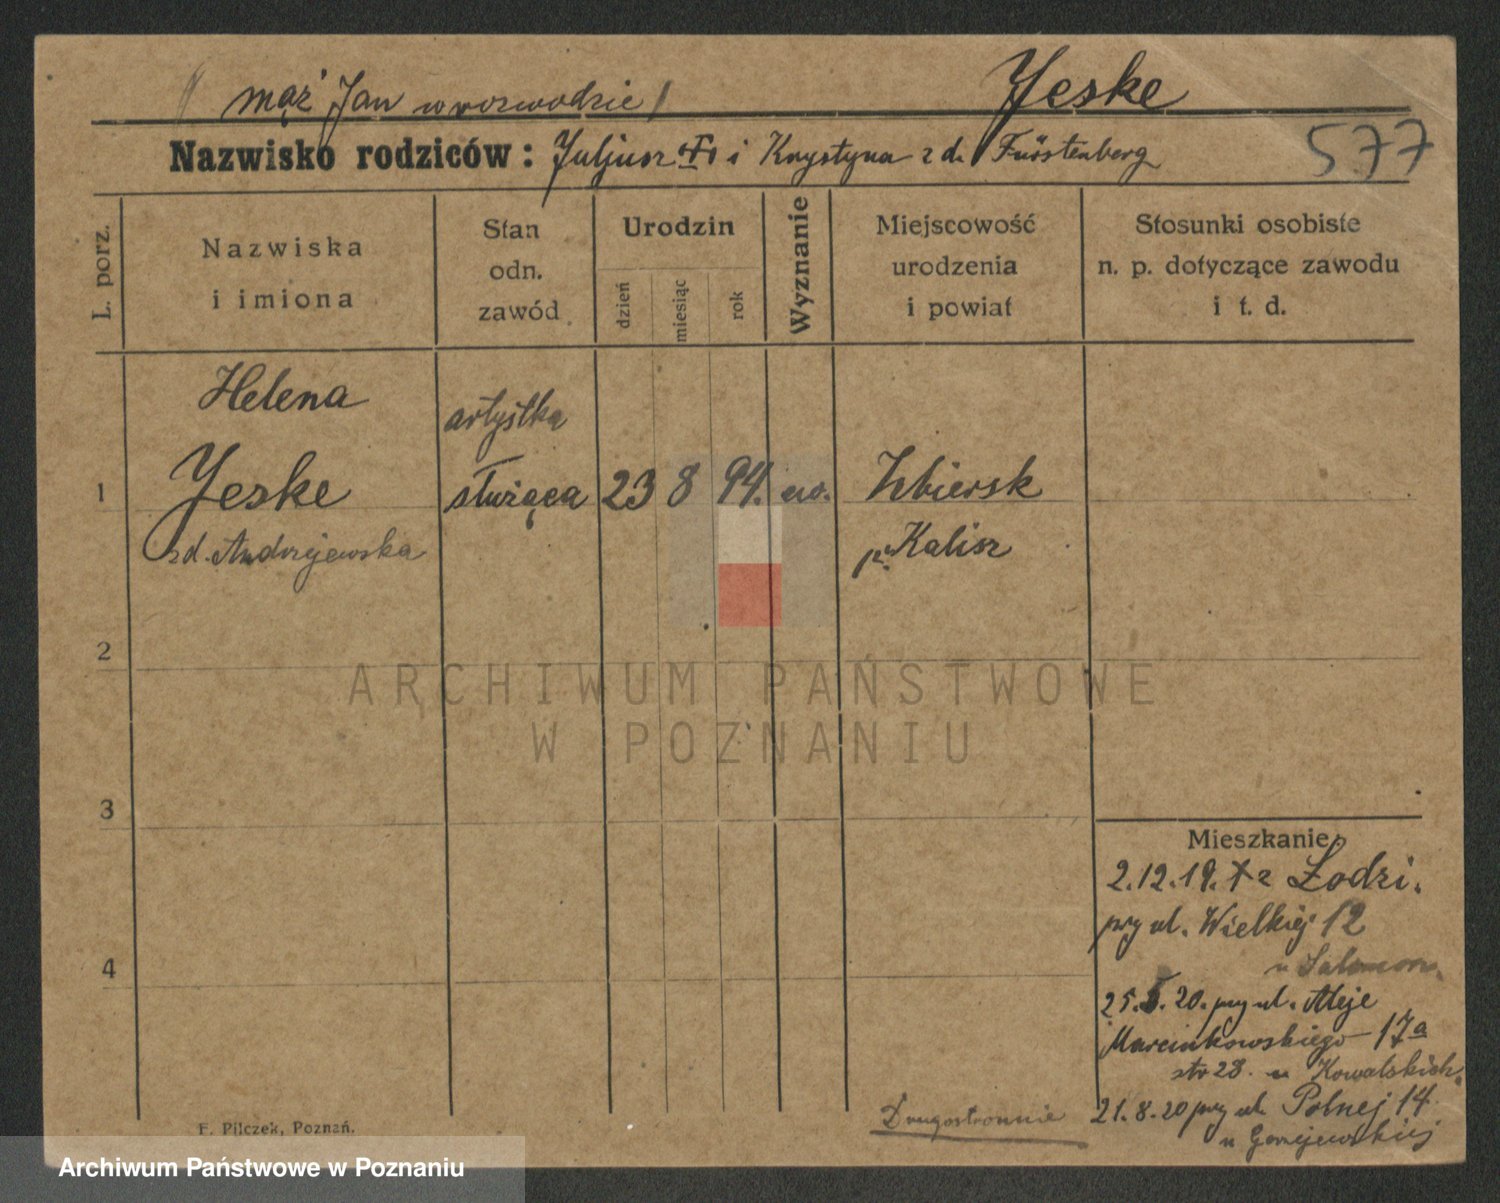 mąż Jan w rozwodzie
Yeske
Nazwisko rodziców: Juljusz i Krystyna z d. Fürstenberg
577
L. porz.
Nazwiska
i imiona
Stan
odn.
zawód
Urodzin
dzień
miesiąc
rok
Wyznanie
Miejscowość
urodzenia
i powiat
Stosunki osobiste
n. p. dotyczące zawodu
i t. d.
1
Helena
Yeske
zd. Andrzejewska
artystka
służąca
23 8 94.
Zbiersk
Kalisz
2
ARCHIWUM PAŃSTWOWE
W POZNANIU
3
4
Mieszkanie:
2.12.19. z Łodzi.
przy ul. Wielkiej 12
u Salomon.
25.5.20. przy ul. Aleje
Marcinkowskiego 17a
str 28. u Kowalskich.
21.8.20 przy ul. Polnej 14
u
Drugostronnie
F. Pilczek, Poznań.
Archiwum Państwowe w Poznaniu